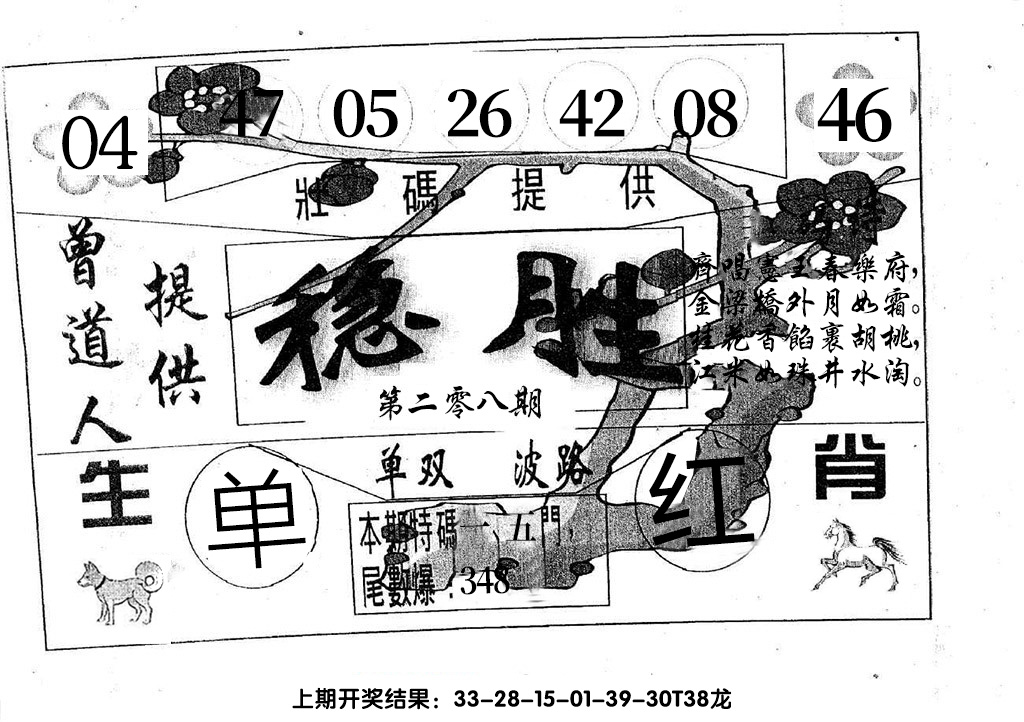 04 47 05 26 42 08 46
壯碼提供
曾道人
提供
稳胜
第二零八期
齊唱憲王春樂府,
金梁橋外月如霜。
桂花香餡裹胡桃,
江米如珠井水淘。
单双 波路
生肖
单
红
本期特碼一、五門,
尾數爆:348
上期开奖结果：33-28-15-01-39-30T38龙